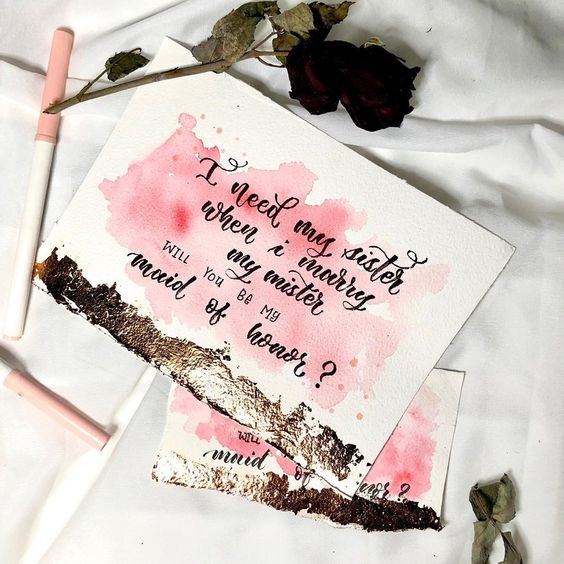 I need my sister
when i marry
my mister
WILL YOU BE MY
maid of honor?
WILL
maid of nor?